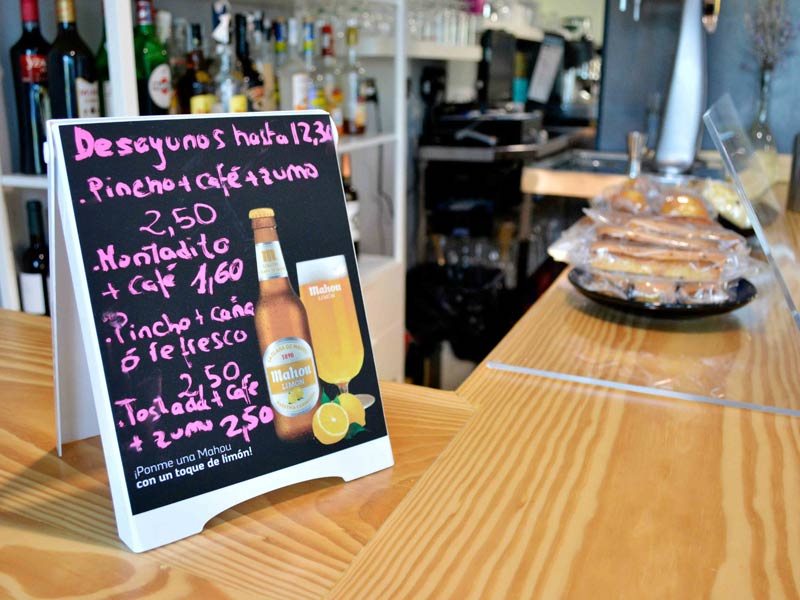 Desayunos hasta 12,30
.Pincho + café + zumo
2,50
.Montadito
+ café 1,60
.Pincho + caña
ó refresco
2,50
.Tostada + café
+ zumo 2,50
¡Ponme una Mahou
con un toque de limón!
Mahou
LIMÓN
1890
Mahou
LIMÓN